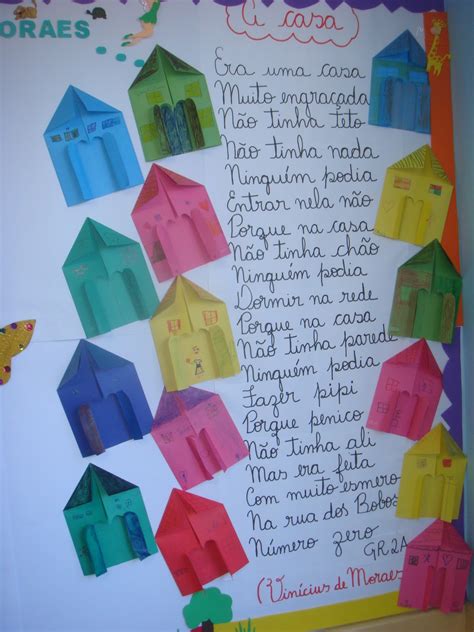 ORAES
A casa
Era uma casa
Muito engraçada
Não tinha teto
Não tinha nada
Ninguém podia
Entrar nela não
Porque na casa
Não tinha chão
Ninguém podia
Dormir na rede
Porque na casa
Não tinha parede
Ninguém podia
Fazer pipi
Porque penico
Não tinha ali
Mas era feita
Com muito esmero
Na rua dos Bobos
Número zero
GR2A
(Vinícius de Moraes